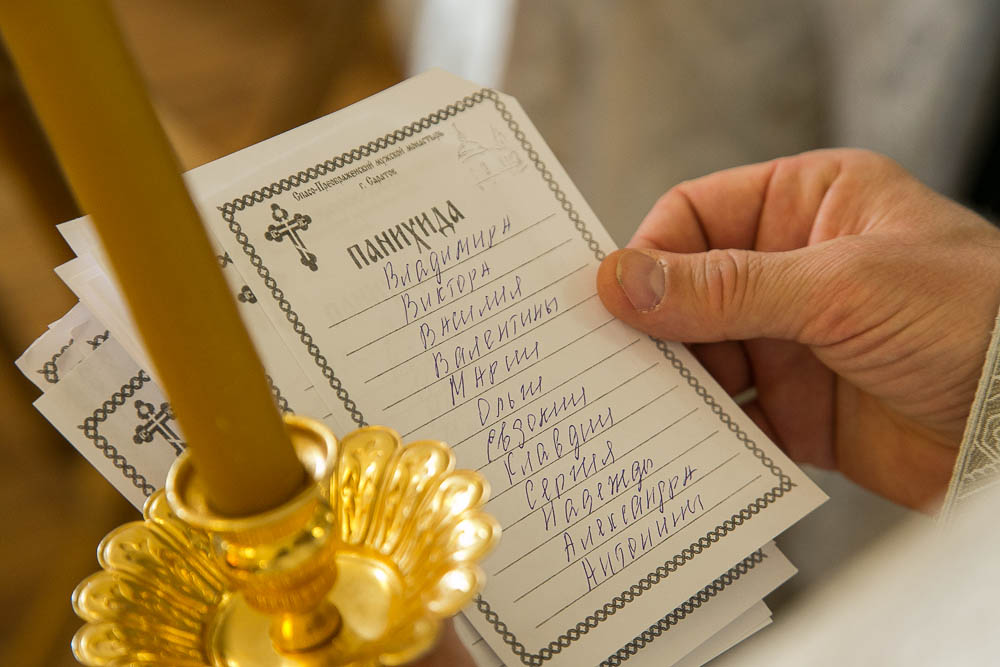 Спасо-Преображенский мужской монастырь
г. Саратов
ПАНИХИДА
Владимира
Виктора
Василия
Валентины
Марии
Ольги
Евдокии
Клавдии
Сергия
Надежды
Александра
Антонины